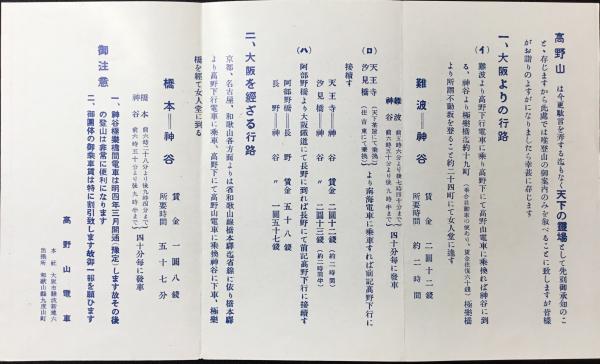 高野山 は今更駄言を弄する迄もなく天下の靈場として先刻御承知のこ
と、存じますから此處では唯登山の御案内のみを叙べることに致しますが皆樣
がお詣りのよすがになりましたら幸甚に存じます
一、大阪よりの行路
(イ) 難波より高野下行電車に乘り高野下にて高野山電車に乘換れば神谷に到
る、神谷より極樂橋迄約十九町 極樂橋
より所謂不動坂を登ること約二十四町にて女人堂に達す
難波=神谷 賃金 二圓十二錢
所要時間 約二時間
四十分毎に發車
(ロ) 天王寺
汐見橋
より南海電車に乘車すれば前記高野下行に
接續す
天王寺=神谷 賃金 二圓十二錢 (約二時間)
汐見橋=神谷 〃 二圓十三錢 (約二時間半)
(ハ) 阿部野橋より大阪鐵道にて長野に到れば長野にて前記高野下行に接續す
阿部野橋=長野 賃金 五十八錢
長野=神谷 〃 一圓五十七錢
二、大阪を經ざる行路
京都、名古屋、和歌山各方面よりは省和歌山線橋本驛迄省線に依り橋本驛
より高野下行電車に乘車、高野下にて高野山電車に乘換神谷に下車、極樂
橋を經て女人堂に到る
橋本=神谷 賃金 一圓八錢
所要時間 五十七分
橋本 前六時二十八分より後九時四分まで
神谷 前六時五十分より後九時半まで
四十分毎に發車
御注意
一、神谷極樂橋間電車は明四年三月開通(豫定)します故その後
の登山は非常に便利になります
二、御團体の御乘車賃は特に割引致します故御一報を願ひます
高野山電車
本社 大阪市難波新地六
出張所 和歌山縣九度山町